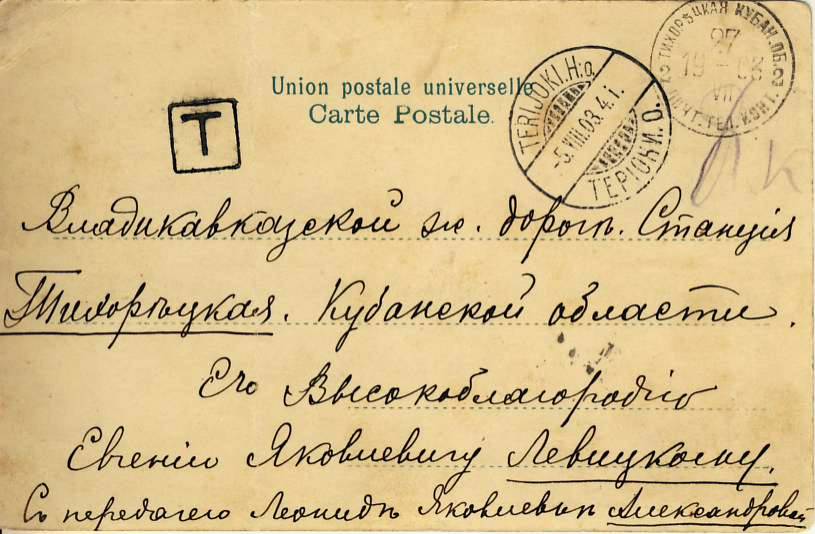 Union postale universelle
Carte Postale.
T
TERIJOKI.H:o.
-5.VIII.03.4.i.
ТЕРІОКИ. О.
ТИХОРѢЦКАЯ КУБАН.ОБ.
27
19-03
VII
ПОЧТ.ТЕЛ.КОНТ.
Владикавказской ж. дорогѣ. Станція
Тихорѣцкая. Кубанской области.
Его Высокоблагородію
Евгенію Яковлевичу Левицкому.
Съ передачею Леонидѣ Яковлевнѣ Александровой